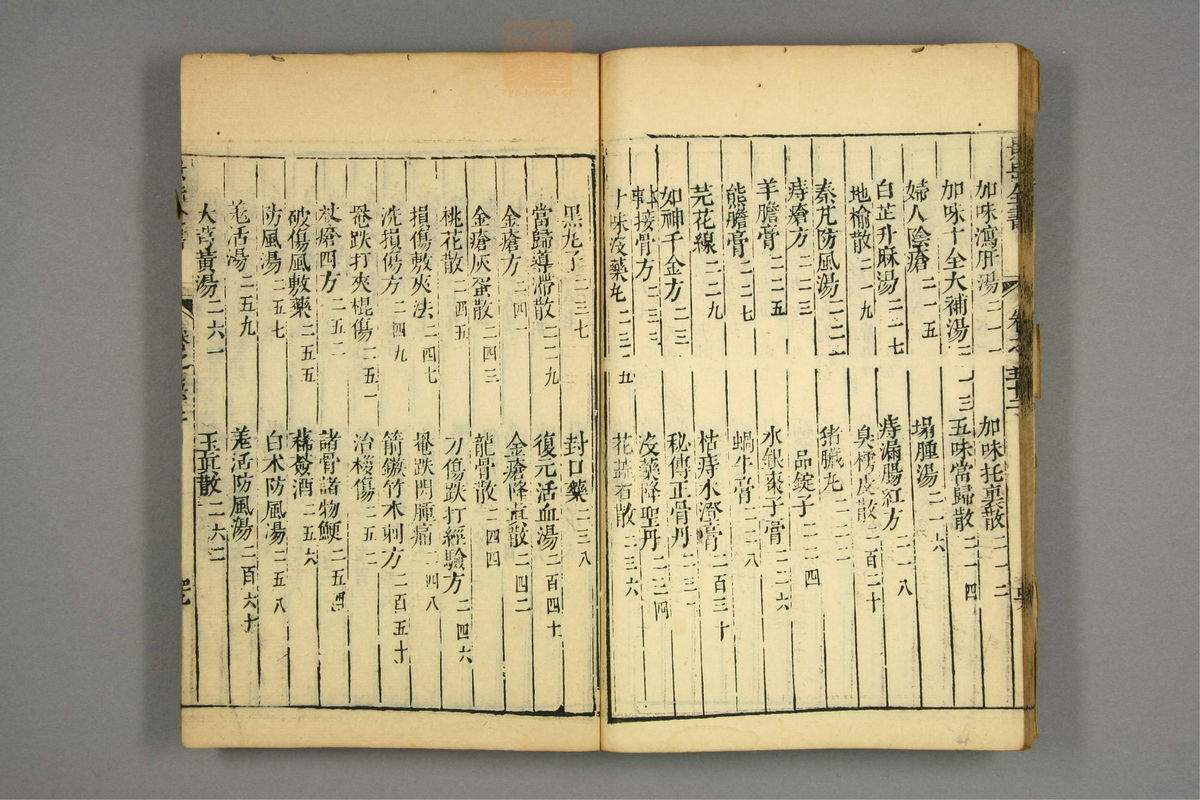 景岳全書
卷之五十二
加味瀉肝湯二一一
加味托裏散二一二
加味十全大補湯二一三
五味當歸散二一四
婦人陰瘡二一五
塌腫湯二一六
白芷升麻湯二一七
痔漏腸紅方二一八
地榆散二一九
臭樗皮散二百二十
秦艽防風湯二二一
猪臟丸二二二
痔瘡方二二三
品錠子二二四
羊膽膏二二五
水銀棗子膏二二六
熊膽膏二二七
蝸牛膏二二八
芫花線二二九
枯痔水澄膏二百三十
如神千金方二三一
秘傳正骨丹二三二
接骨方二三三
沒藥降聖丹二三四
十味沒藥丸二三五
花蕊石散二三六
黑丸子二三七
封口藥二三八
當歸導滯散二三九
復元活血湯二百四十
金瘡方二四一
金瘡降真散二四二
金瘡灰蛋散二四三
龍骨散二四四
桃花散二四五
刀傷跌打經驗方二四六
損傷敷夾法二四七
罨跌閃腫痛二四八
洗損傷方二四九
箭鏃竹木刺方二百五十
罨跌打夾棍傷二五一
治梭傷二五二
杖瘡四方二五三
諸骨諸物鯁二五四
破傷風敷藥二五五
蘇葛酒二五六
防風湯二五七
白朮防風湯二五八
羌活湯二五九
羌活防風湯二百六十
大芎黃湯二六一
玉真散二六二